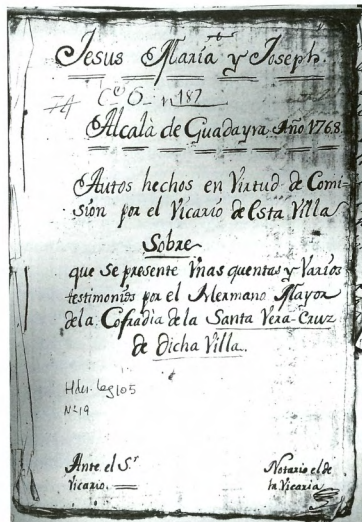 Jesus Maria y Joseph.
Cª S- nº 187
Alcalá de Guadayra Año 1768
Autos hechos en Virtud de Comi-
sion por el Vicario de esta Villa
Sobre
que se presente unas quentas y Varios
testimonios por el Hermano Mayor
de la Cofradia de la Santa Vera-Cruz
de dicha Villa.
leg 105
Nº 19
Ante el Sr
Vicario.
Notario el de
la Vicaria